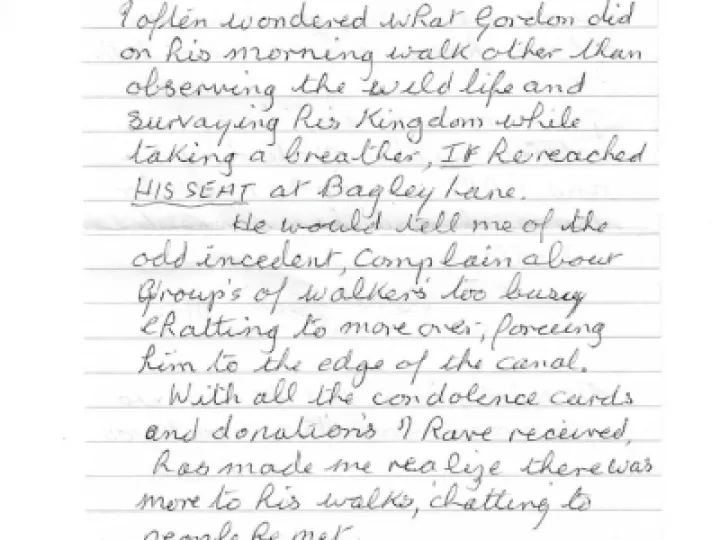 I often wondered what Gordon did
on his morning walk other than
observing the wild life and
survaying his Kingdom while
taking a breather, IF he reached
HIS SEAT at Bagley Lane.
He would tell me of the
odd incedent, Complain about
group's of walkers too busy
chatting to move over, forceing
him to the edge of the canal.
With all the condolence cards
and donation's I have received,
has made me realize there was
more to his walks, chatting to
people he met.